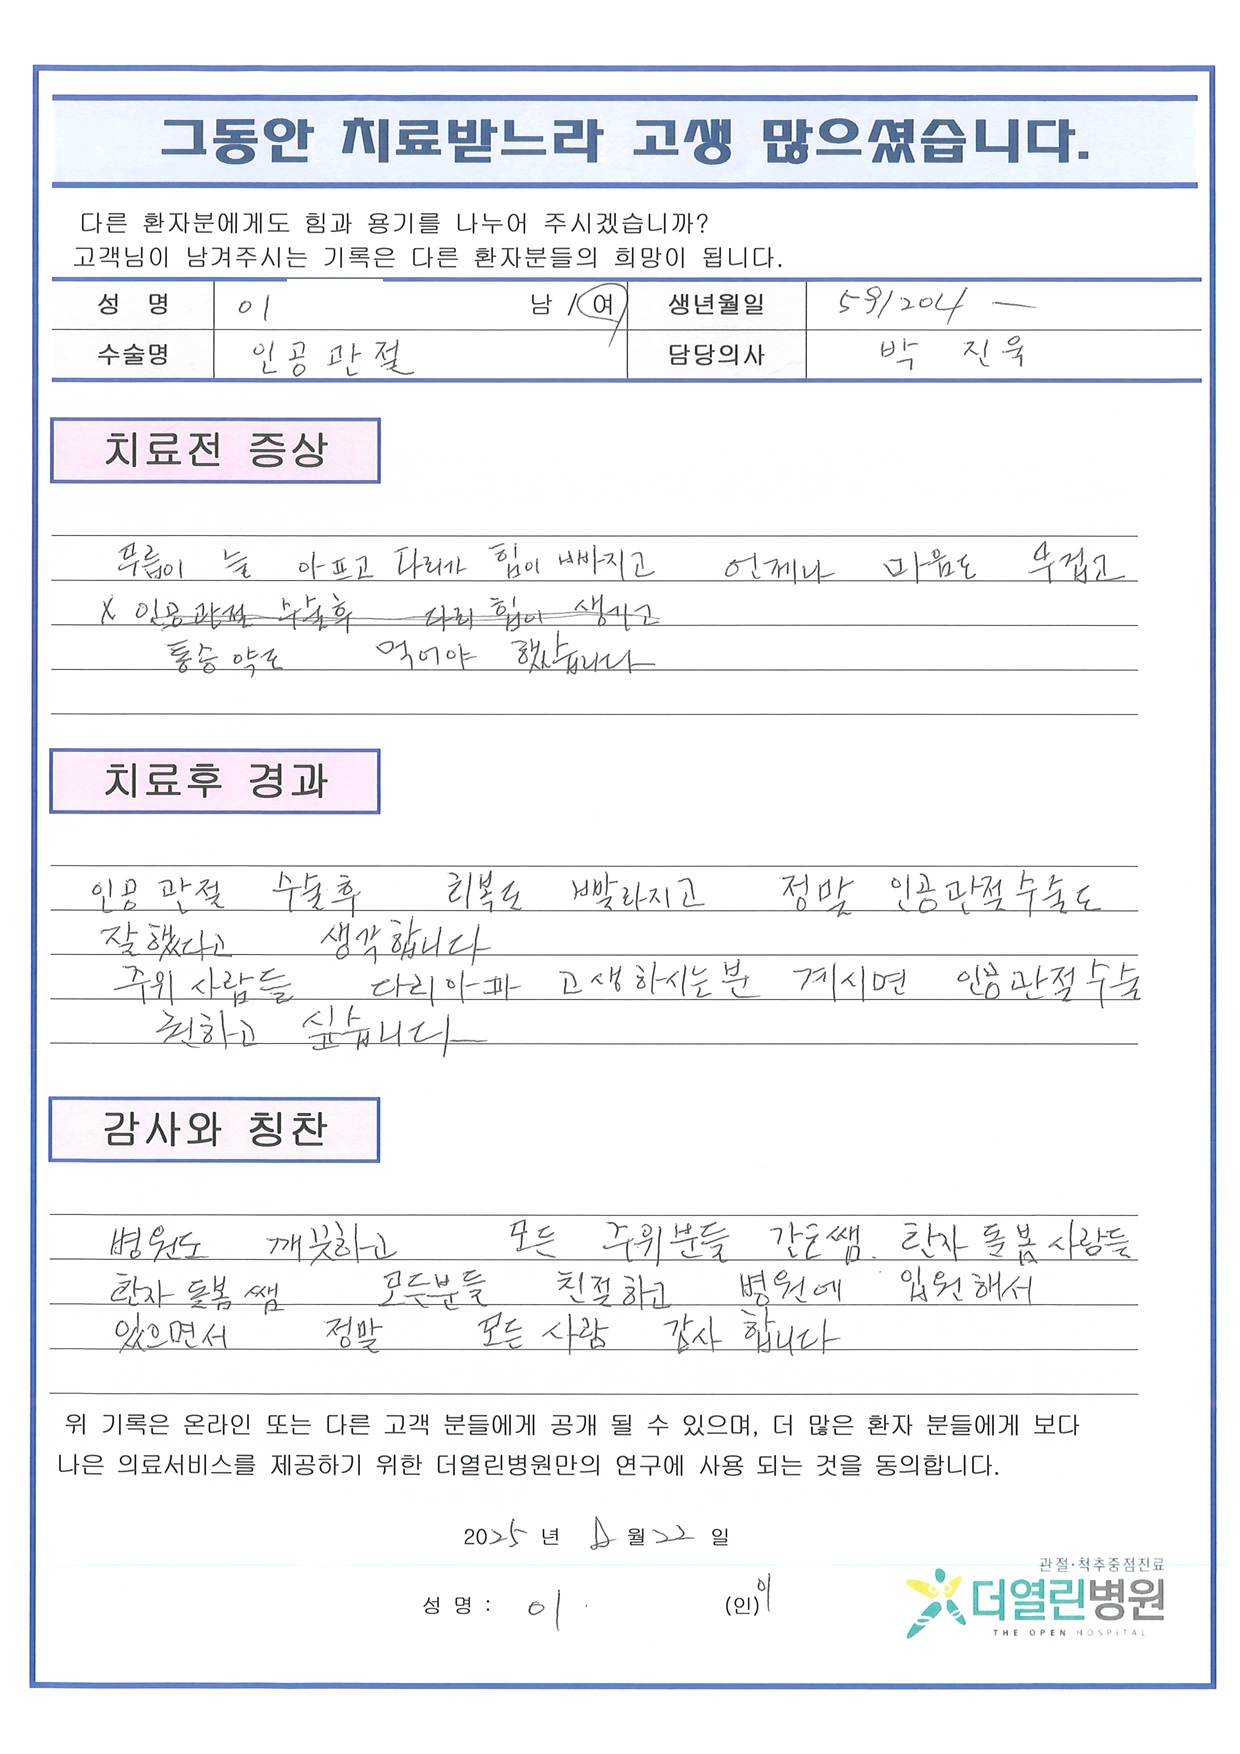 그동안 치료받느라 고생 많으셨습니다.
다른 환자분에게도 힘과 용기를 나누어 주시겠습니까?
고객님이 남겨주시는 기록은 다른 환자분들의 희망이 됩니다.
성 명 이 남 / 여 생년월일 591204 —
수술명 인공관절 담당의사 박 진욱
치료전 증상
무릎이 늘 아프고 다리가 힘이 빠지고 언제나 마음도 무겁고
X 인공관절 수술후 다리 힘이 생기고
통증약도 먹어야 했습니다
치료후 경과
인공관절 수술후 회복도 빨라지고 정말 인공관절수술도
잘했다고 생각합니다
주위 사람들 다리아파 고생하시는분 계시면 인공관절수술
권하고 싶습니다
감사와 칭찬
병원도 깨끗하고 모든 주위분들 간호쌤. 환자 돌봄 사람들
환자 돌봄 쌤 모든분들 친절하고 병원에 입원해서
있으면서 정말 모든 사람 감사 합니다
위 기록은 온라인 또는 다른 고객 분들에게 공개 될 수 있으며, 더 많은 환자 분들에게 보다
나은 의료서비스를 제공하기 위한 더열린병원만의 연구에 사용 되는 것을 동의합니다.
2025 년 8 월 22 일
성 명 : 이 (인) 이
관절·척추중점진료
더열린병원
THE OPEN HOSPITAL